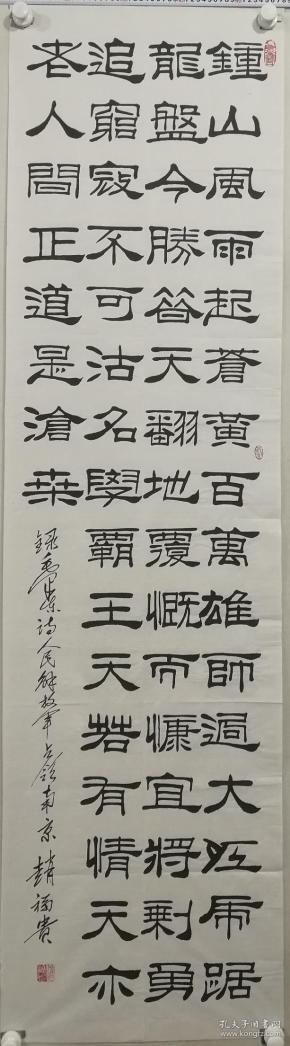 鍾山風雨起蒼黃百萬雄師過大江虎踞
龍盤今勝昔天翻地覆慨而慷宜將剩勇
追窮寇不可沽名學霸王天若有情天亦
老人間正道是滄桑
錄毛主席詩人民解放軍占領南京 趙福貴
孔夫子旧书网